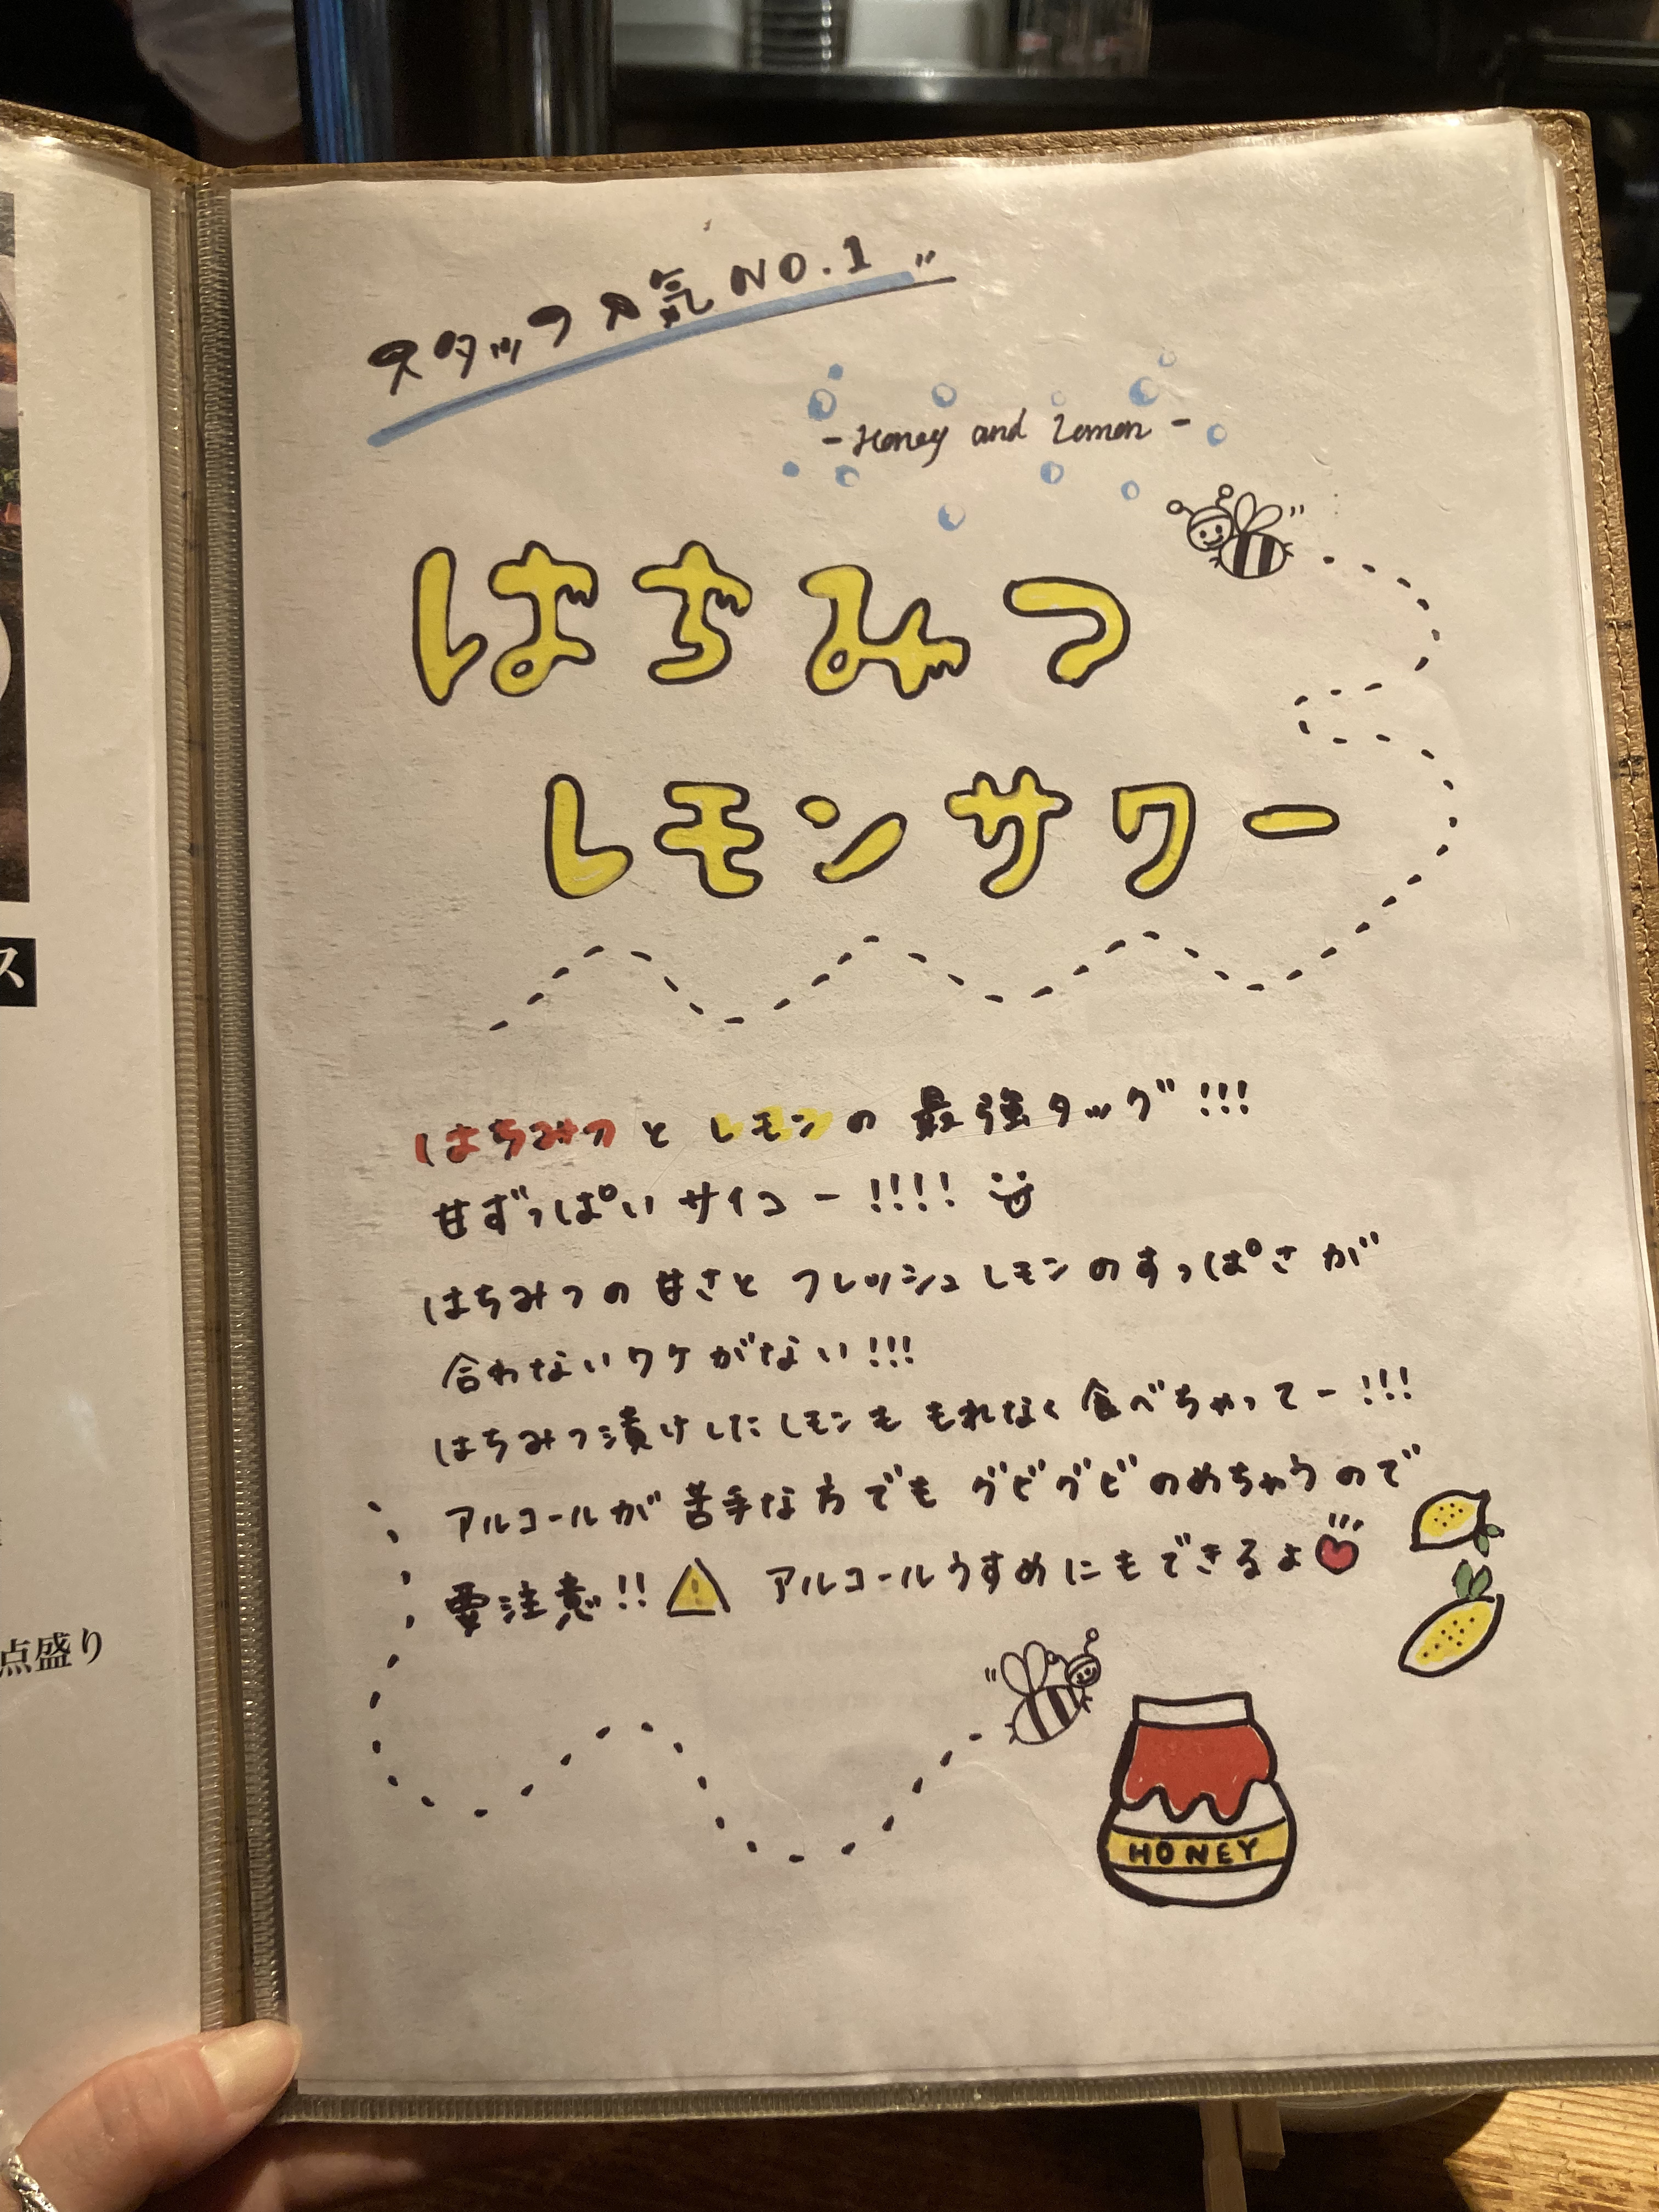 スタッフ人気NO.1
-Honey and Lemon-
はちみつ
レモンサワー
はちみつとレモンの最強タッグ!!!
甘ずっぱいサイコー!!!!
はちみつの甘さとフレッシュレモンのすっぱさが
合わないワケがない!!!
はちみつ漬けしたレモンももれなく食べちゃってー!!!
アルコールが苦手な方でもグビグビのめちゃうので
要注意!! アルコールうすめにもできるよ
HONEY
ス
点盛り